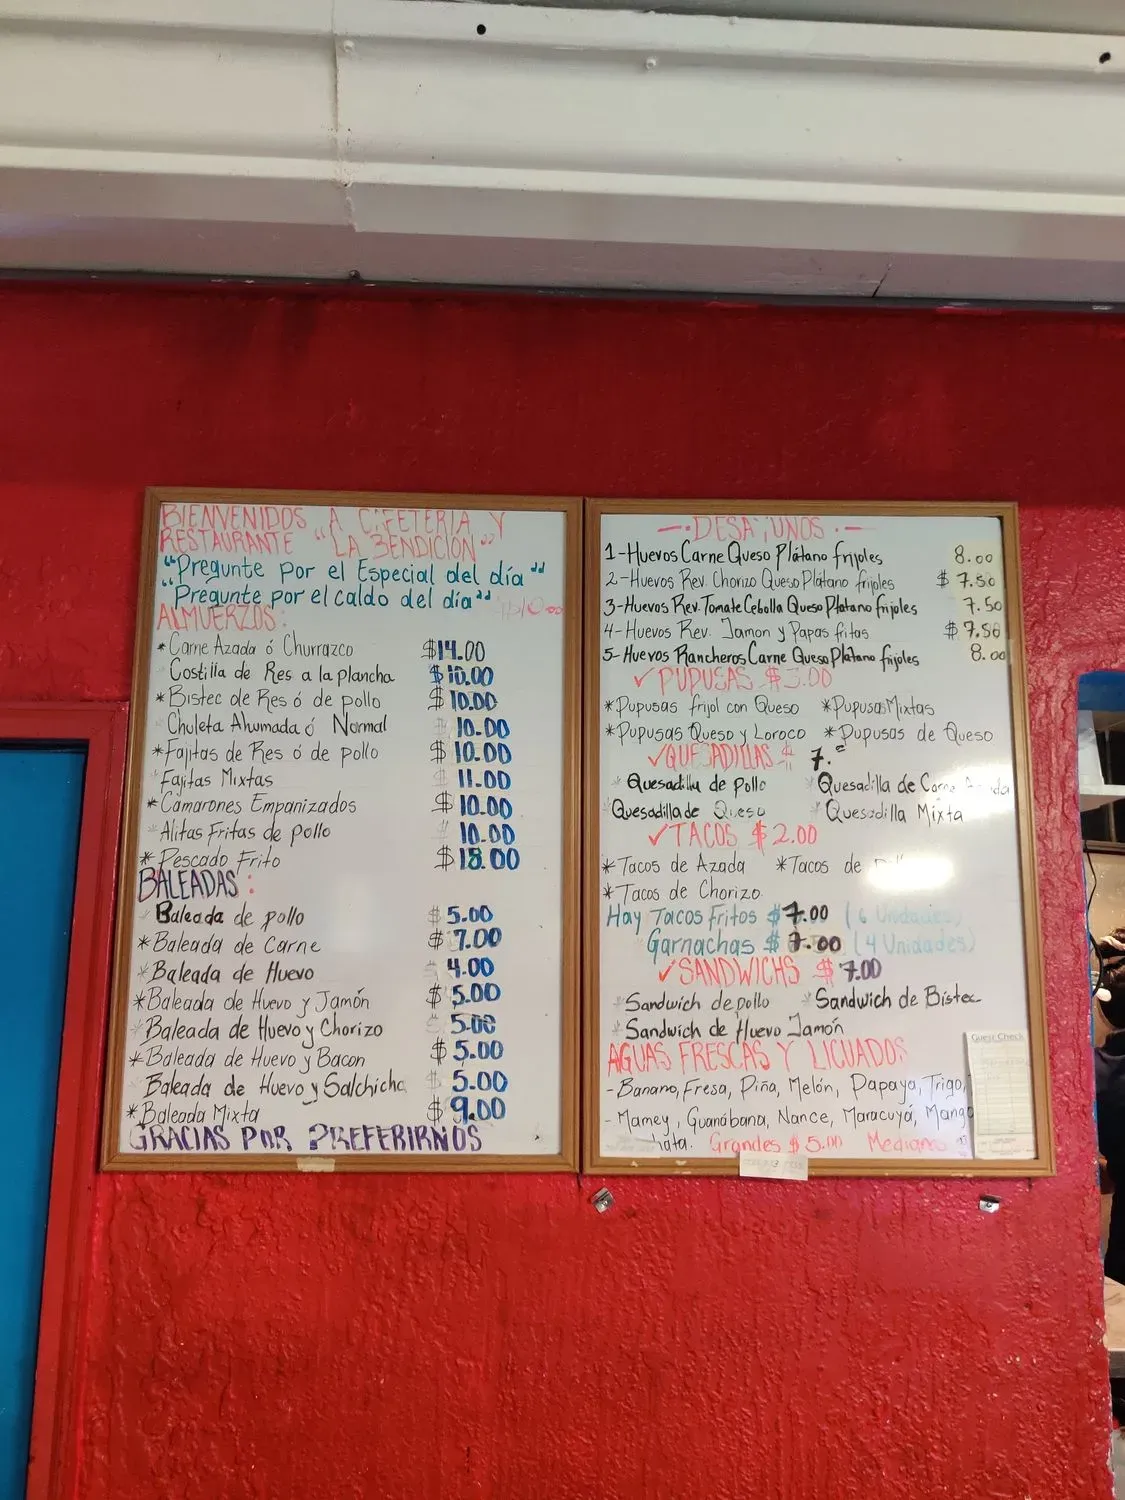 BIENVENIDOS A CAFETERIA Y
RESTAURANTE "LA BENDICION"
"Pregunte por el Especial del día"
"Pregunte por el caldo del día"
ALMUERZOS:
*Carne Azada ó Churrazco $14.00
Costilla de Res a la plancha $10.00
*Bistec de Res ó de pollo $10.00
Chuleta Ahumada ó Normal 10.00
*Fajitas de Res ó de pollo $10.00
Fajitas Mixtas $11.00
*Camarones Empanizados $10.00
*Alitas Fritas de pollo $10.00
*Pescado Frito $18.00
BALEADAS:
Baleada de pollo $5.00
*Baleada de Carne $7.00
*Baleada de Huevo 4.00
*Baleada de Huevo y Jamón $5.00
*Baleada de Huevo y Chorizo $5.00
*Baleada de Huevo y Bacon $5.00
Baleada de Huevo y Salchicha $5.00
*Baleada Mixta $9.00
GRACIAS POR PREFERIRNOS
-.DESAYUNOS.-
1-Huevos Carne Queso Plátano frijoles 8.00
2-Huevos Rev. Chorizo Queso Platano frijoles $7.50
3-Huevos Rev. Tomate Cebolla Queso Platano frijoles 7.50
4-Huevos Rev. Jamon y Papas fritas $7.50
5-Huevos Rancheros Carne Queso Platano frijoles 8.00
✓PUPUSAS $3.00
*Pupusas frijol con Queso *Pupusas Mixtas
*Pupusas Queso y Loroco *Pupusas de Queso
✓QUESADILLAS $7.
*Quesadilla de Pollo *Quesadilla de Carne Azada
Quesadilla de Queso *Quesadilla Mixta
✓TACOS $2.00
*Tacos de Azada *Tacos de
*Tacos de Chorizo
Hay Tacos Fritos $7.00 (6 Unidades)
Garnachas $7.00 (4 Unidades)
✓SANDWICHS $7.00
*Sandwich de pollo *Sandwich de Bistec
*Sandwich de Huevo Jamón
AGUAS FRESCAS Y LICUADOS
-Banano, Fresa, Piña, Melón, Papaya, Trigo,
-Mamey, Guanábana, Nance, Maracuyá, Mango
Grandes $5.00 Mediano
Guest Check